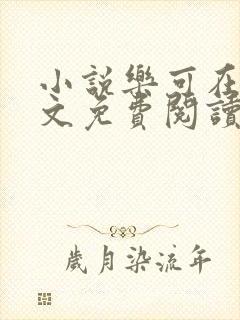 小說樂可在
文免費閱讀
歲月染流年